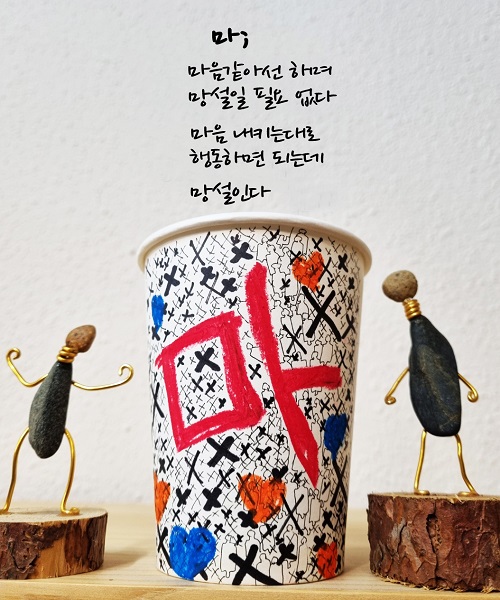 마;
마음같아선 하며
망설일 필요 없다
마음 내키는대로
행동하면 되는데
망설인다
마